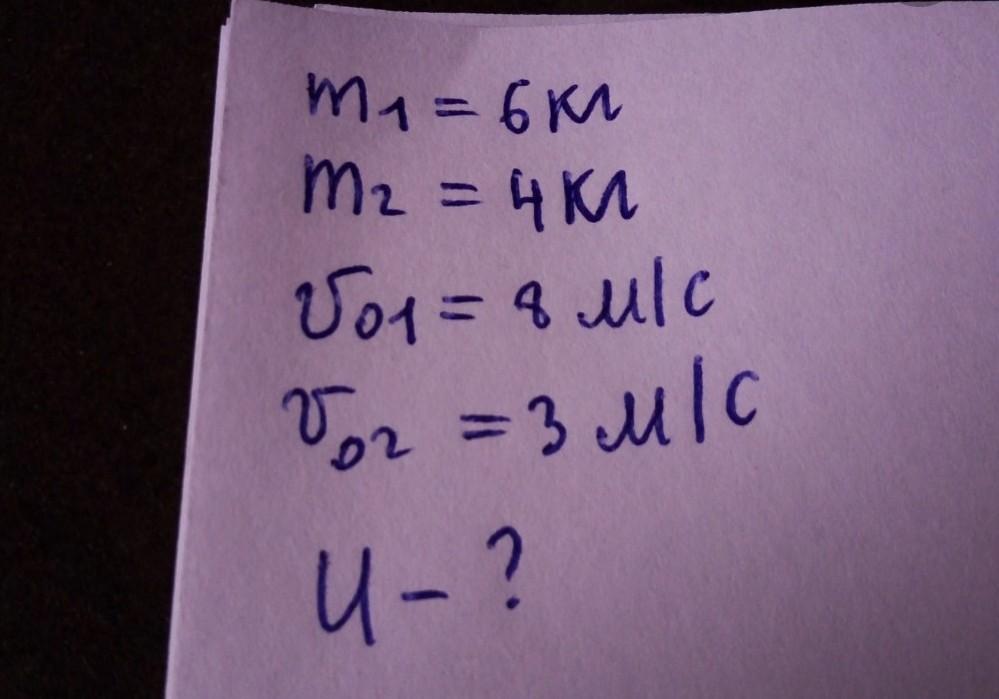 m₁ = 6 кг
m₂ = 4 кг
v₀₁ = 8 м/с
v₀₂ = 3 м/с
U - ?